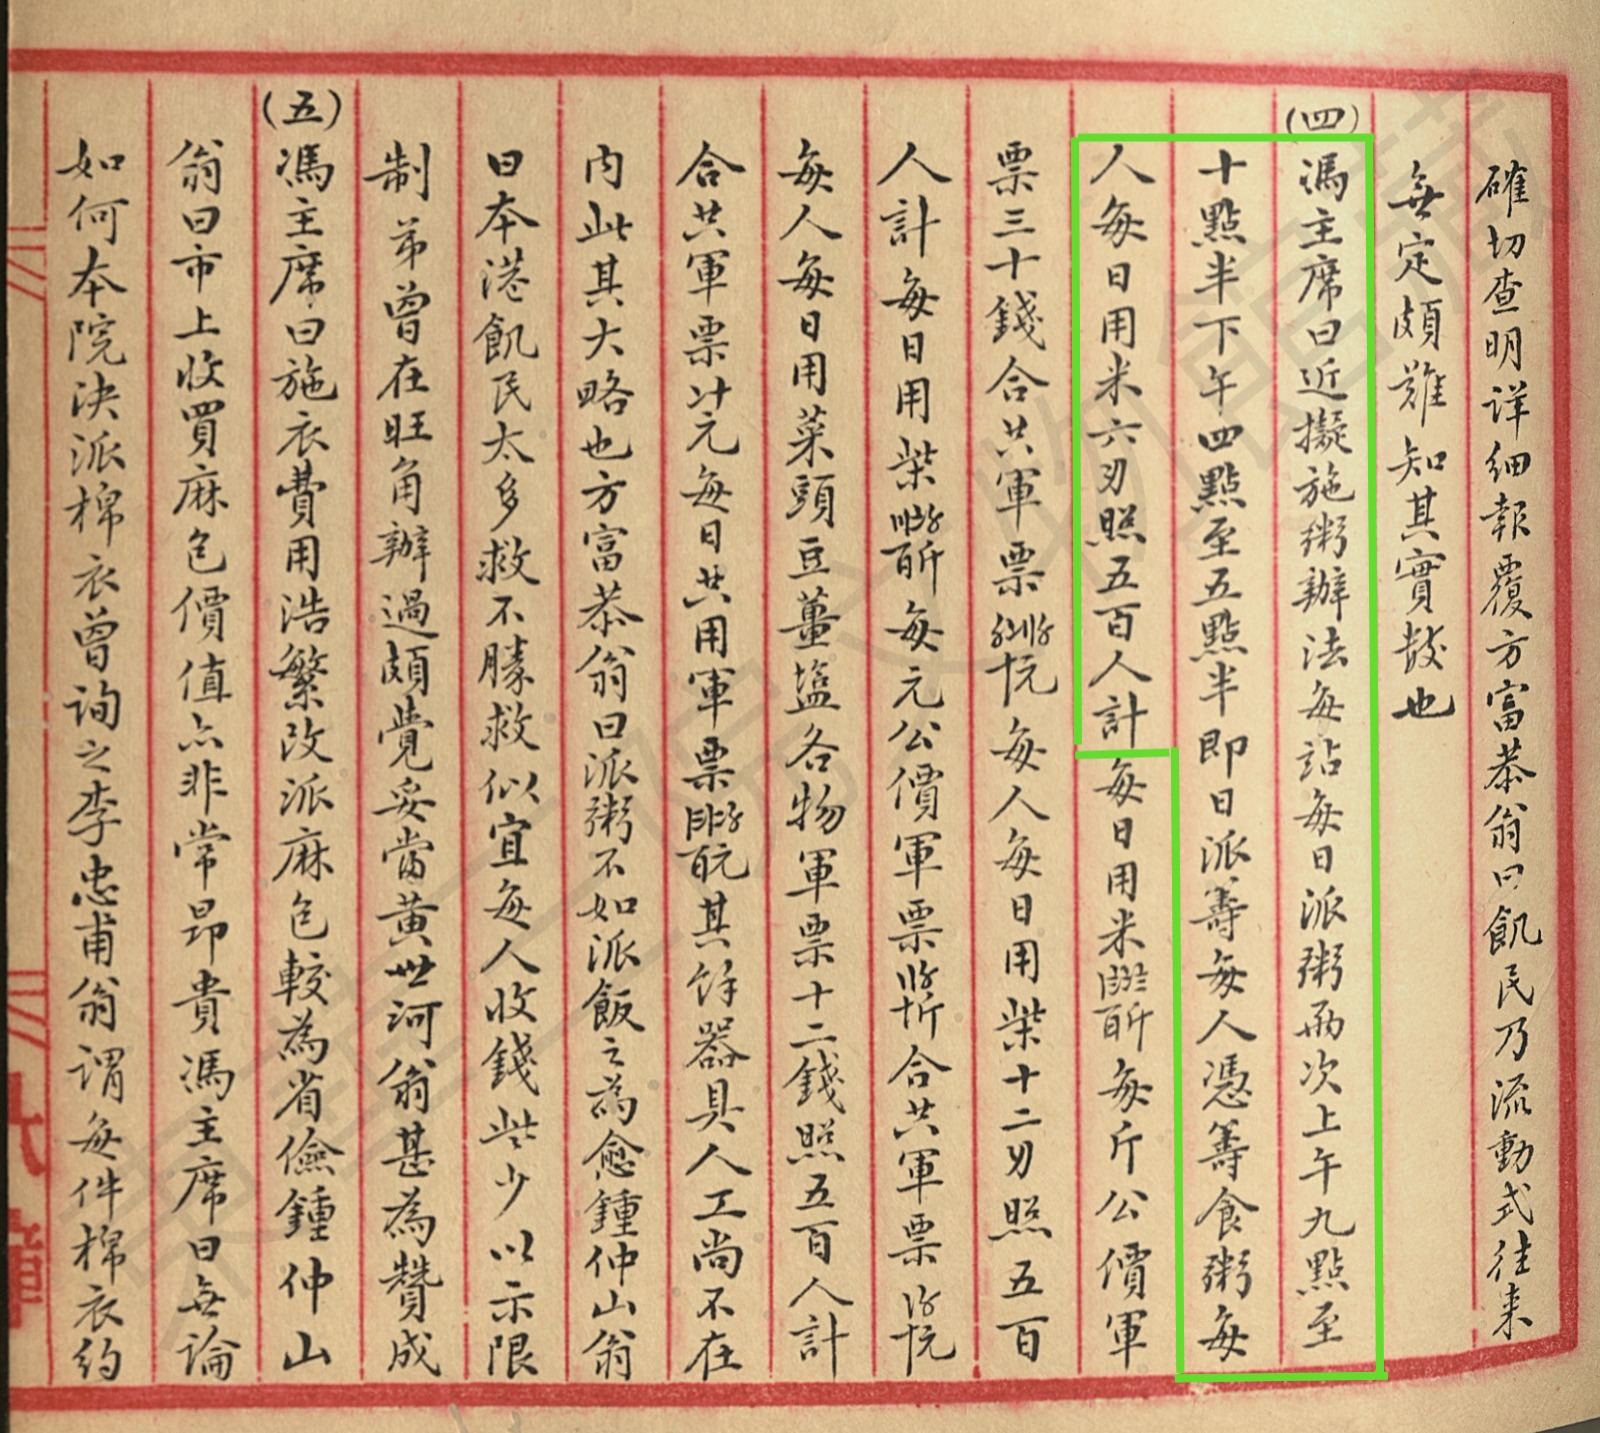 確切查明详細報覆方富恭翁曰飢民乃流動式往来
無定頗難知其實数也
(四)馮主席曰近擬施粥辦法每站每日派粥兩次上午九點至
十點半下午四點至五點半即日派籌每人憑籌食粥每
人每日用米六刄照五百人計每日用米百斤每斤公價軍
票三十錢合共軍票十元每人每日用柴十二刄照五百
人計每日用柴百斤每元公價軍票十斤合共軍票十元
每人每日用菜頭豆薑塩各物軍票十二錢照五百人計
合共軍票元每日共用軍票百元其餘器具人工尚不在
内此其大略也方富恭翁曰派粥不如派飯之為愈鍾仲山翁
日本港飢民太多救不勝救似宜每人收錢些少以示限
制弟曾在旺角辦過頗覺妥當黄世河翁甚為贊成
(五)馮主席曰施衣費用浩繁改派麻包較為省儉鍾仲山
翁曰市上收買麻包價值亦非常昂貴馮主席曰無論
如何本院決派棉衣曾詢之李忠甫翁謂每件棉衣約
東華三院文物館藏